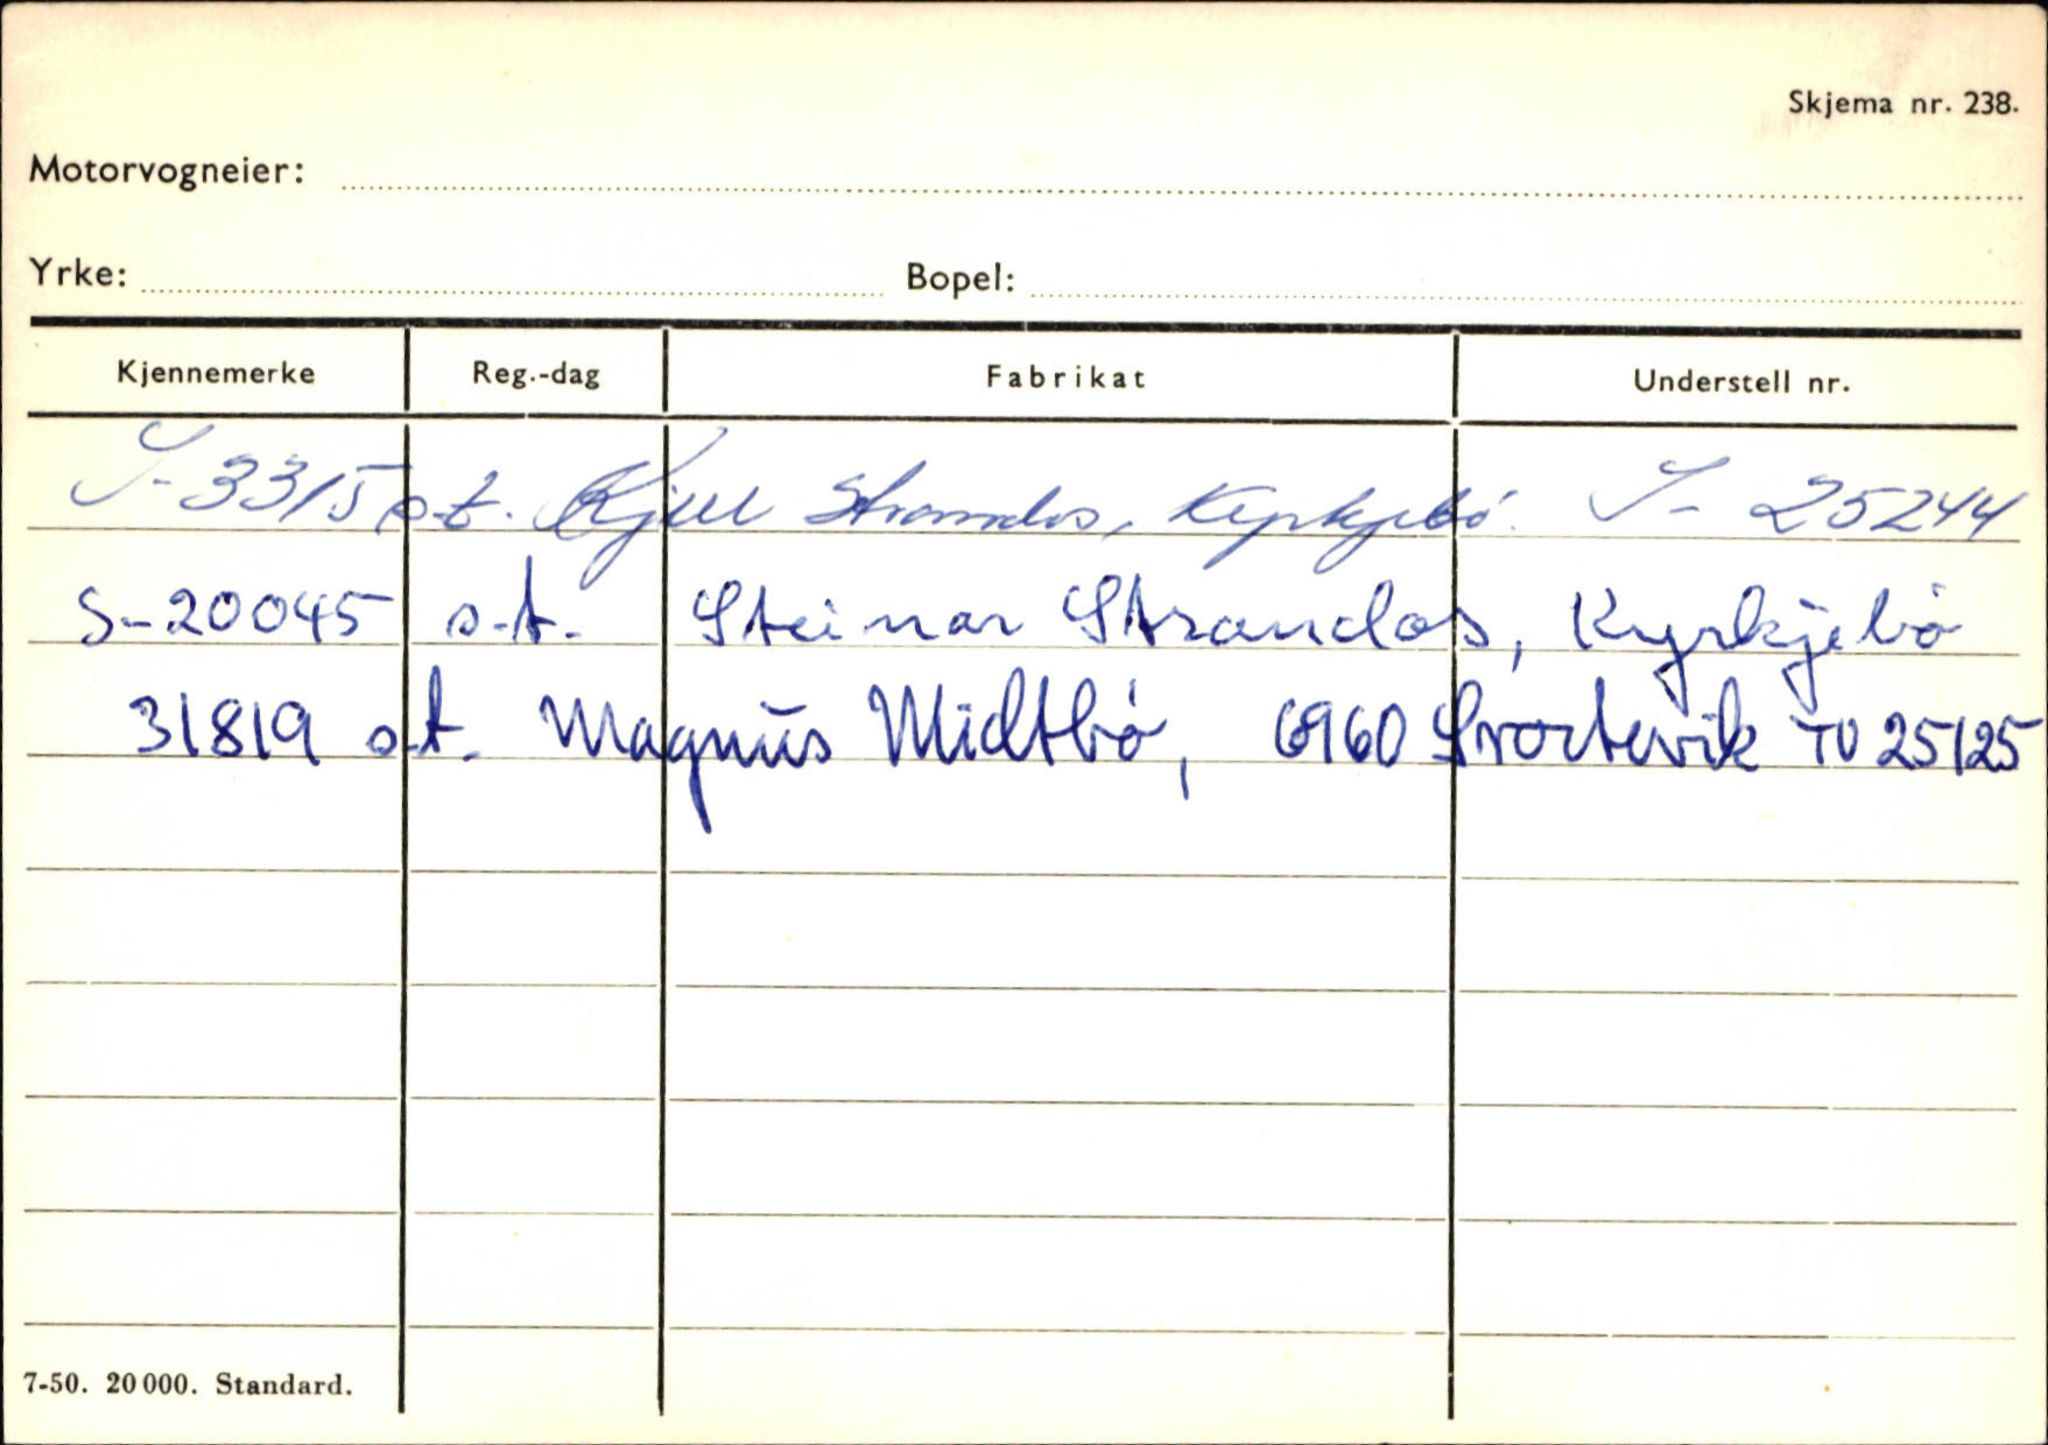 Skjema nr. 238.
Motorvogneier:
Yrke: Bopel:
Kjennemerke Reg.-dag Fabrikat Understell nr.
S-3315 o.t. Kjell Strandos, Kyrkjebø. S- 25244
S-20045 o.t. Steinar Strandos, Kyrkjebø
31819 o.t. Magnus Midtbø, 6960 Svortevik TU 25125
7-50. 20000. Standard.